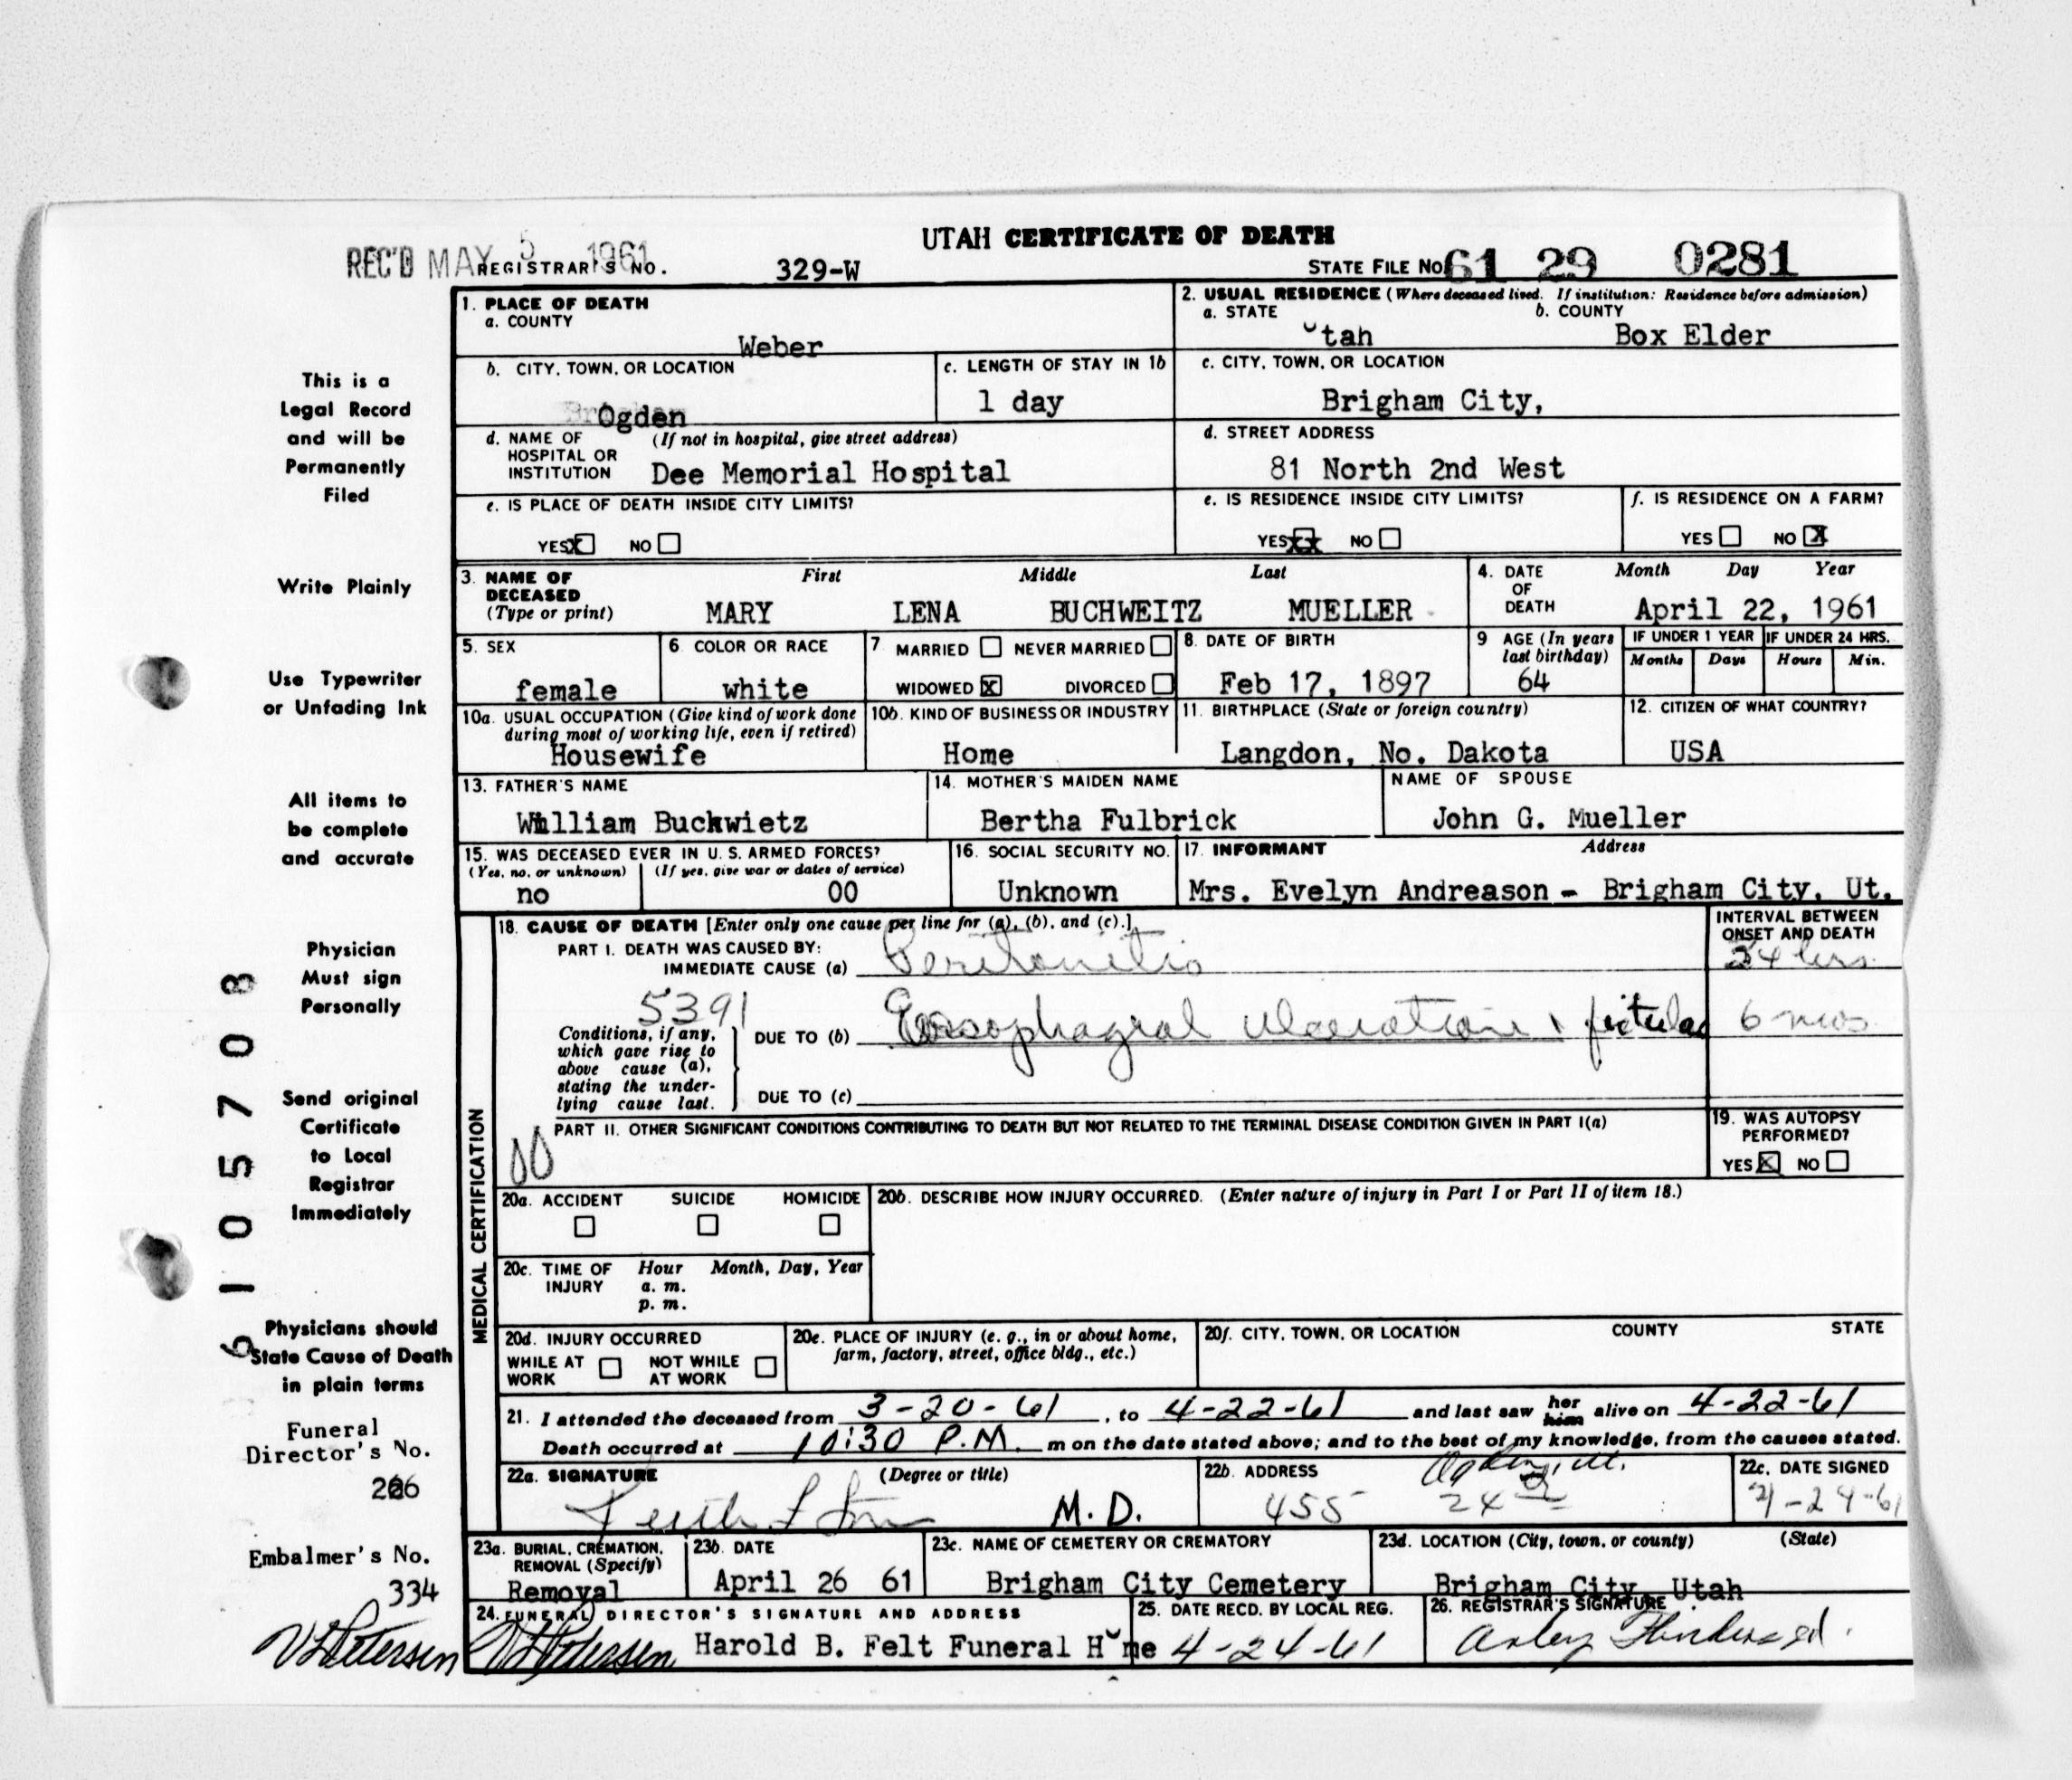 UTAH CERTIFICATE OF DEATH
REC'D MAY 5 1961
REGISTRAR'S NO. 329-W
STATE FILE NO. 61 29 0281
1. PLACE OF DEATH
a. COUNTY
Weber
2. USUAL RESIDENCE (Where deceased lived. If institution: Residence before admission)
a. STATE b. COUNTY
Utah Box Elder
b. CITY, TOWN, OR LOCATION
Ogden
c. LENGTH OF STAY IN 1b
1 day
c. CITY, TOWN, OR LOCATION
Brigham City,
d. NAME OF HOSPITAL OR INSTITUTION (If not in hospital, give street address)
Dee Memorial Hospital
d. STREET ADDRESS
81 North 2nd West
e. IS PLACE OF DEATH INSIDE CITY LIMITS?
YES X NO
e. IS RESIDENCE INSIDE CITY LIMITS?
YES XX NO
f. IS RESIDENCE ON A FARM?
YES NO X
3. NAME OF DECEASED (Type or print) First Middle Last
MARY LENA BUCHWEITZ MUELLER
4. DATE OF DEATH Month Day Year
April 22, 1961
5. SEX
female
6. COLOR OR RACE
white
7. MARRIED NEVER MARRIED
WIDOWED X DIVORCED
8. DATE OF BIRTH
Feb 17, 1897
9 AGE (In years last birthday)
64
IF UNDER 1 YEAR IF UNDER 24 HRS.
Months Days Hours Min.
10a. USUAL OCCUPATION (Give kind of work done during most of working life, even if retired)
Housewife
10b. KIND OF BUSINESS OR INDUSTRY
Home
11. BIRTHPLACE (State or foreign country)
Langdon, No. Dakota
12. CITIZEN OF WHAT COUNTRY?
USA
13. FATHER'S NAME
William Buckwietz
14. MOTHER'S MAIDEN NAME
Bertha Fulbrick
NAME OF SPOUSE
John G. Mueller
15. WAS DECEASED EVER IN U. S. ARMED FORCES?
(Yes, no, or unknown) (If yes, give war or dates of service)
no 00
16. SOCIAL SECURITY NO.
Unknown
17. INFORMANT Address
Mrs. Evelyn Andreason - Brigham City, Ut.
18. CAUSE OF DEATH [Enter only one cause per line for (a), (b), and (c).]
INTERVAL BETWEEN ONSET AND DEATH
PART I. DEATH WAS CAUSED BY:
IMMEDIATE CAUSE (a) Peritonitis 24 hrs.
5391
Conditions, if any, which gave rise to above cause (a), stating the underlying cause last.
DUE TO (b) Esophageal ulceration & fistulae 6 mos
DUE TO (c)
PART II. OTHER SIGNIFICANT CONDITIONS CONTRIBUTING TO DEATH BUT NOT RELATED TO THE TERMINAL DISEASE CONDITION GIVEN IN PART I(a)
00
19. WAS AUTOPSY PERFORMED?
YES X NO
20a. ACCIDENT SUICIDE HOMICIDE
20b. DESCRIBE HOW INJURY OCCURRED. (Enter nature of injury in Part I or Part II of item 18.)
20c. TIME OF INJURY Hour Month, Day, Year
a. m.
p. m.
20d. INJURY OCCURRED
WHILE AT WORK NOT WHILE AT WORK
20e. PLACE OF INJURY (e. g., in or about home, farm, factory, street, office bldg., etc.)
20f. CITY, TOWN, OR LOCATION COUNTY STATE
21. I attended the deceased from 3-20-61, to 4-22-61 and last saw her him alive on 4-22-61
Death occurred at 10:30 P.M. m on the date stated above; and to the best of my knowledge, from the causes stated.
22a. SIGNATURE (Degree or title)
Keith M. D.
22b. ADDRESS
Ogden, Ut.
455 24
22c. DATE SIGNED
4-24-61
23a. BURIAL, CREMATION, REMOVAL (Specify)
Removal
23b. DATE
April 26 61
23c. NAME OF CEMETERY OR CREMATORY
Brigham City Cemetery
23d. LOCATION (City, town, or county) (State)
Brigham City, Utah
24. FUNERAL DIRECTOR'S SIGNATURE AND ADDRESS
Petersen Harold B. Felt Funeral Home
25. DATE RECD. BY LOCAL REG.
4-24-61
26. REGISTRAR'S SIGNATURE
MEDICAL CERTIFICATION
This is a
Legal Record
and will be
Permanently
Filed
Write Plainly
Use Typewriter
or Unfading Ink
All items to
be complete
and accurate
Physician
Must sign
Personally
Send original
Certificate
to Local
Registrar
Immediately
Physicians should
State Cause of Death
in plain terms
Funeral
Director's No.
266
Embalmer's No.
334
Petersen
6105708